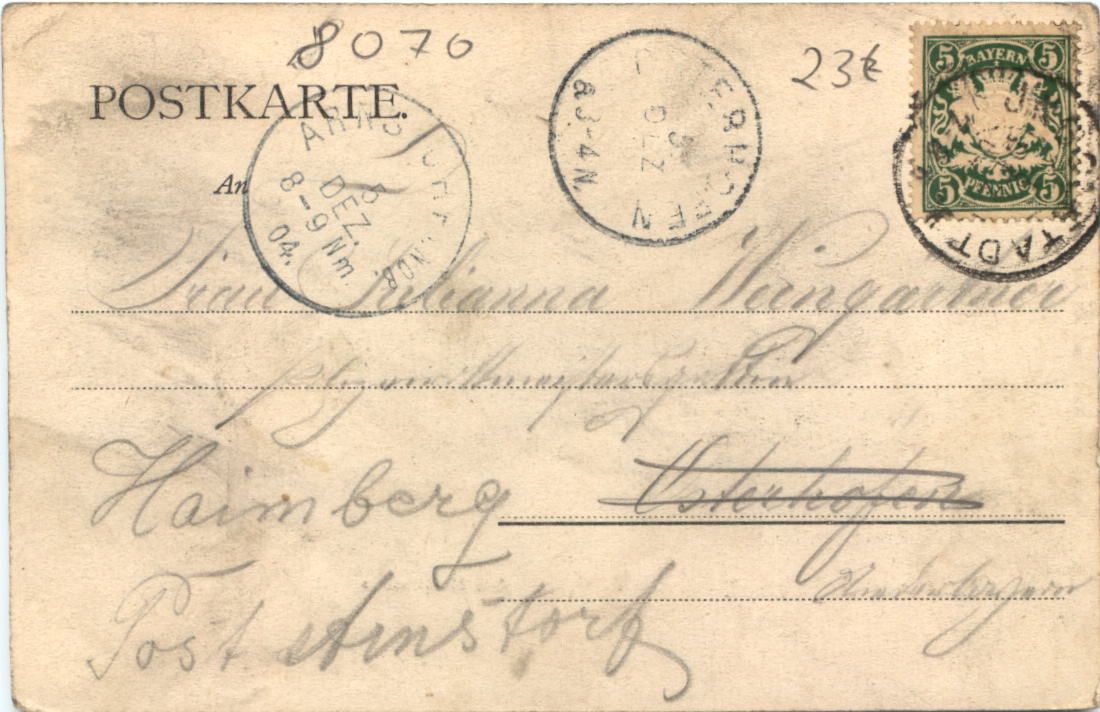 8070
23€
POSTKARTE.
An
ARNSTORF NDB.
5
DEZ.
8-9 Nm.
04.
OSTERHOFEN
5
DEZ
3-4 N.
BAYERN
5 5
5 PFENNIG 5
STADT
Frau Julianna Weingartner
Haimberg Osterhofen
Niederbayern
Post Arnstorf